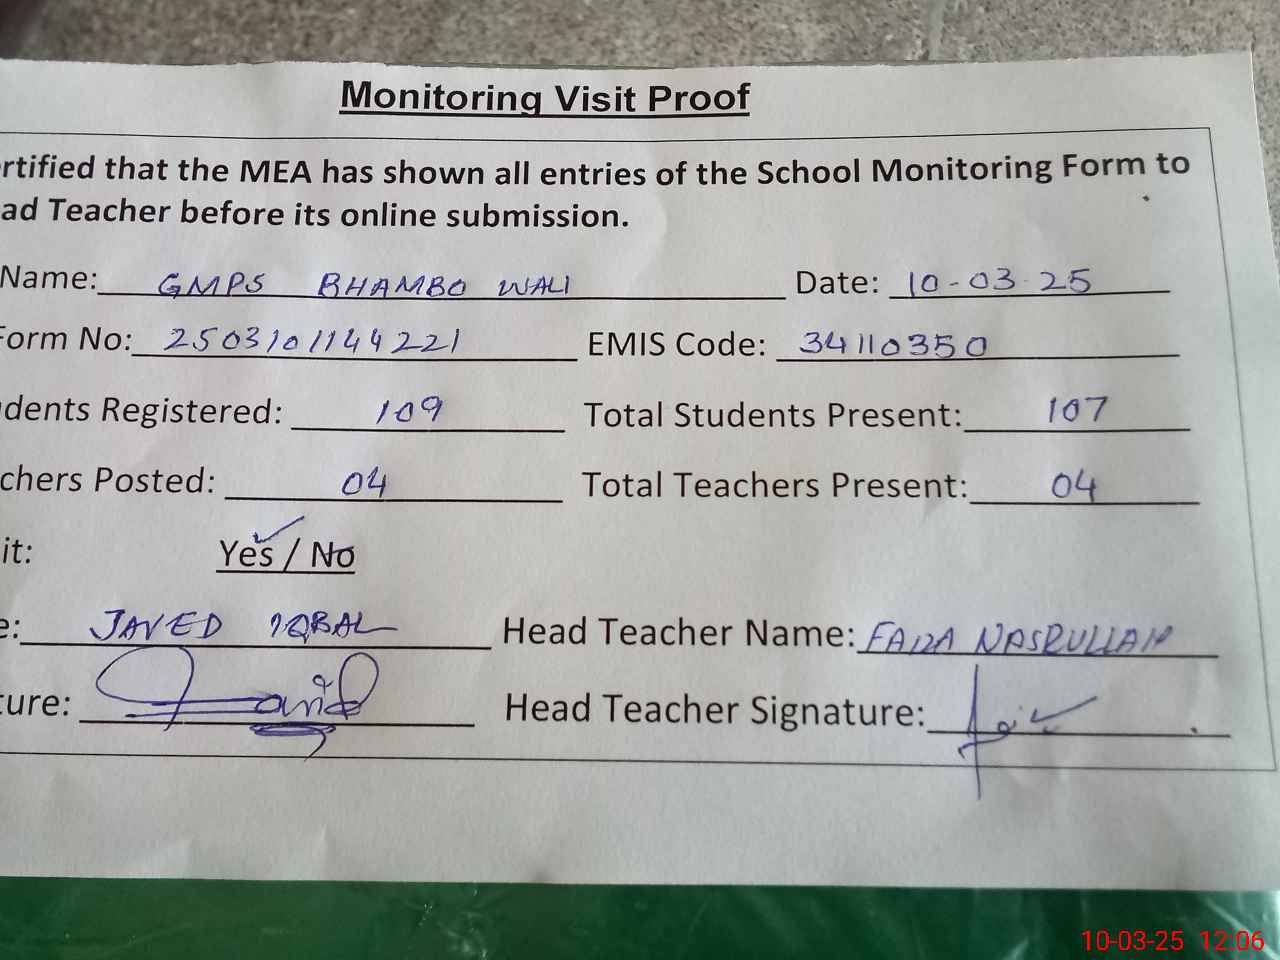 Monitoring Visit Proof
rtified that the MEA has shown all entries of the School Monitoring Form to
ad Teacher before its online submission.
Name: GMPS BHAMBO WALI Date: 10-03-25
Form No: 2503101144221 EMIS Code: 34110350
dents Registered: 109 Total Students Present: 107
chers Posted: 04 Total Teachers Present: 04
it: Yes / No
e: JAVED IQBAL Head Teacher Name: FAIZA NASRULLAH
ture: Javid Head Teacher Signature:
10-03-25 12:06